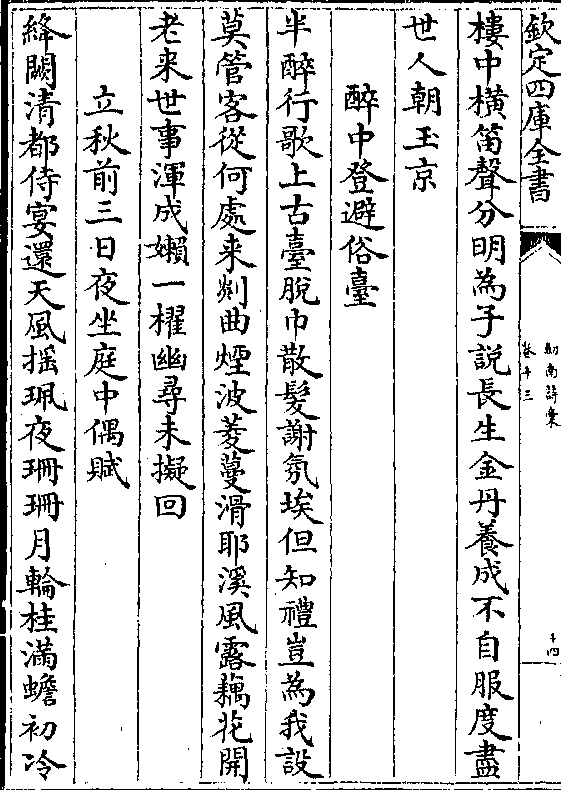 欽定四庫全書
劍南詩稾
卷五十三
十四
樓中横笛聲分明為子說長生金丹養成不自服度盡
世人朝玉京
醉中登避俗臺
半醉行歌上古臺脫巾散髮謝氛埃但知禮豈為我設
莫管客從何處来剡曲煙波菱蔓滑耶溪風露藕花開
老来世事渾成嬾一櫂幽尋未擬回
立秋前三日夜坐庭中偶賦
絳闕清都侍宴還天風摇珮夜珊珊月輪桂滿蟾初冷